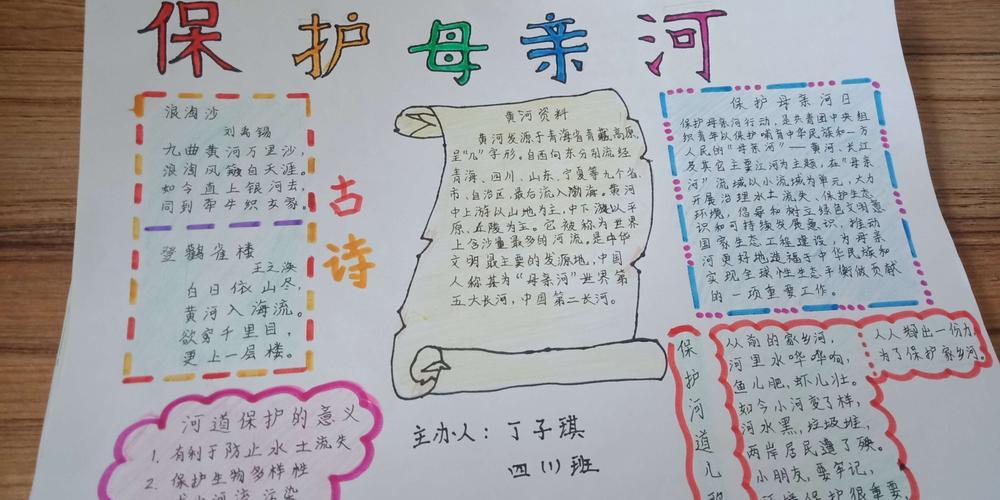 保护母亲河
浪淘沙
刘禹锡
九曲黄河万里沙，
浪淘风簸自天涯。
如今直上银河去，
同到牵牛织女家。
登鹳雀楼
王之涣
白日依山尽，
黄河入海流。
欲穷千里目，
更上一层楼。
古诗
河道保护的意义
1. 有利于防止水土流失
2. 保护生物多样性
黄河资料
黄河发源于青海省青藏高原，
呈“几”字形。自西向东分别流经
青海、四川、山东、宁夏等九个省、
市、自治区，最后流入渤海。黄河
中上游以山地为主，中下游以平
原、丘陵为主。它被称为世界
上含沙量最多的河流，是中华
文明最主要的发源地，中国
人称其为“母亲河”世界第
五大长河，中国第二长河。
主办人：丁子琪
四（1）班
保护母亲河日
保护母亲河行动，是共青团中央组
织青年以保护哺育中华民族和一方
人民的“母亲河”——黄河、长江
及其它主要江河为主题，在“母亲
河”流域以小流域为单元，大力
开展治理水土流失、保护生态
环境，倡导和树立绿色文明意
识和可持续发展意识，推动
国家生态工程建设，为母亲
河更好地造福于中华民族和
实现全球性生态平衡做贡献
的一项重要工作。
保护河道儿歌
从前的家乡河，
河里水哗哗响，
鱼儿肥，虾儿壮。
如今小河变了样，
河水黑，垃圾堆，
两岸居民遭了殃。
小朋友，要牢记，
环境保护很重要
人人释出一份力，
为了保护家乡河。